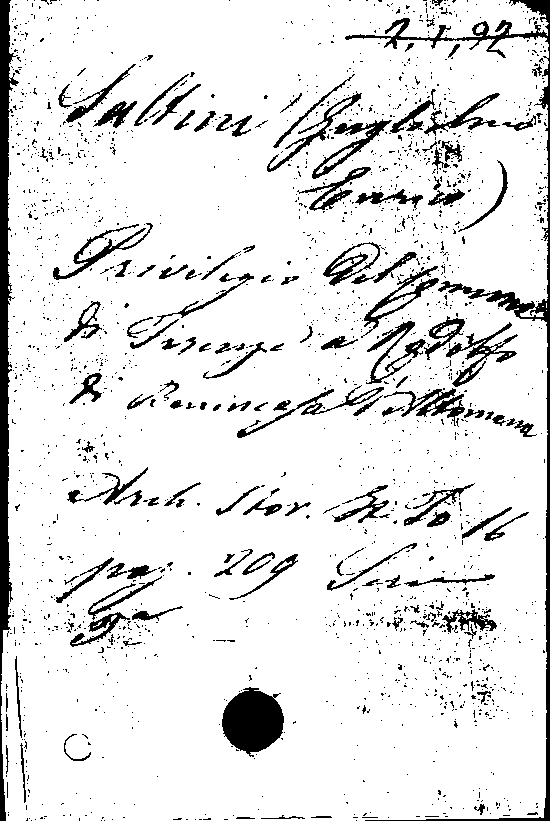 2, 1, 92
Saltini (Guglielmo
Enrico)
Privilegio del Comune
di Firenze a Rodolfo
di Benincasa d'Altomena
Arch. Stor. It. To 16
pag. 209 Serie
3a